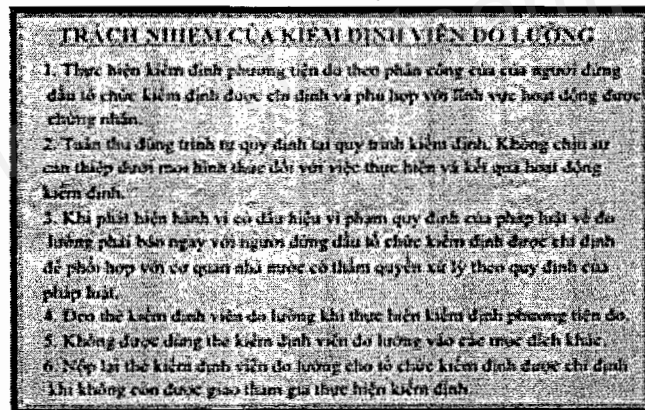 TRÁCH NHIỆM CỦA KIỂM ĐỊNH VIÊN ĐO LƯỜNG
1. Thực hiện kiểm định phương tiện đo theo phân công của của người đứng
đầu tổ chức kiểm định được chỉ định và phù hợp với lĩnh vực hoạt động được
chứng nhận.
2. Tuân thủ đúng trình tự quy định tại quy trình kiểm định. Không chịu sự
can thiệp dưới mọi hình thức đối với việc thực hiện và kết quả hoạt động
kiểm định.
3. Khi phát hiện hành vi có dấu hiệu vi phạm quy định của pháp luật về đo
lường phải báo ngay với người đứng đầu tổ chức kiểm định được chỉ định
để phối hợp với cơ quan nhà nước có thẩm quyền xử lý theo quy định của
pháp luật.
4. Đeo thẻ kiểm định viên đo lường khi thực hiện kiểm định phương tiện đo.
5. Không được dùng thẻ kiểm định viên đo lường vào các mục đích khác.
6. Nộp lại thẻ kiểm định viên đo lường cho tổ chức kiểm định được chỉ định
khi không còn được giao tham gia thực hiện kiểm định.